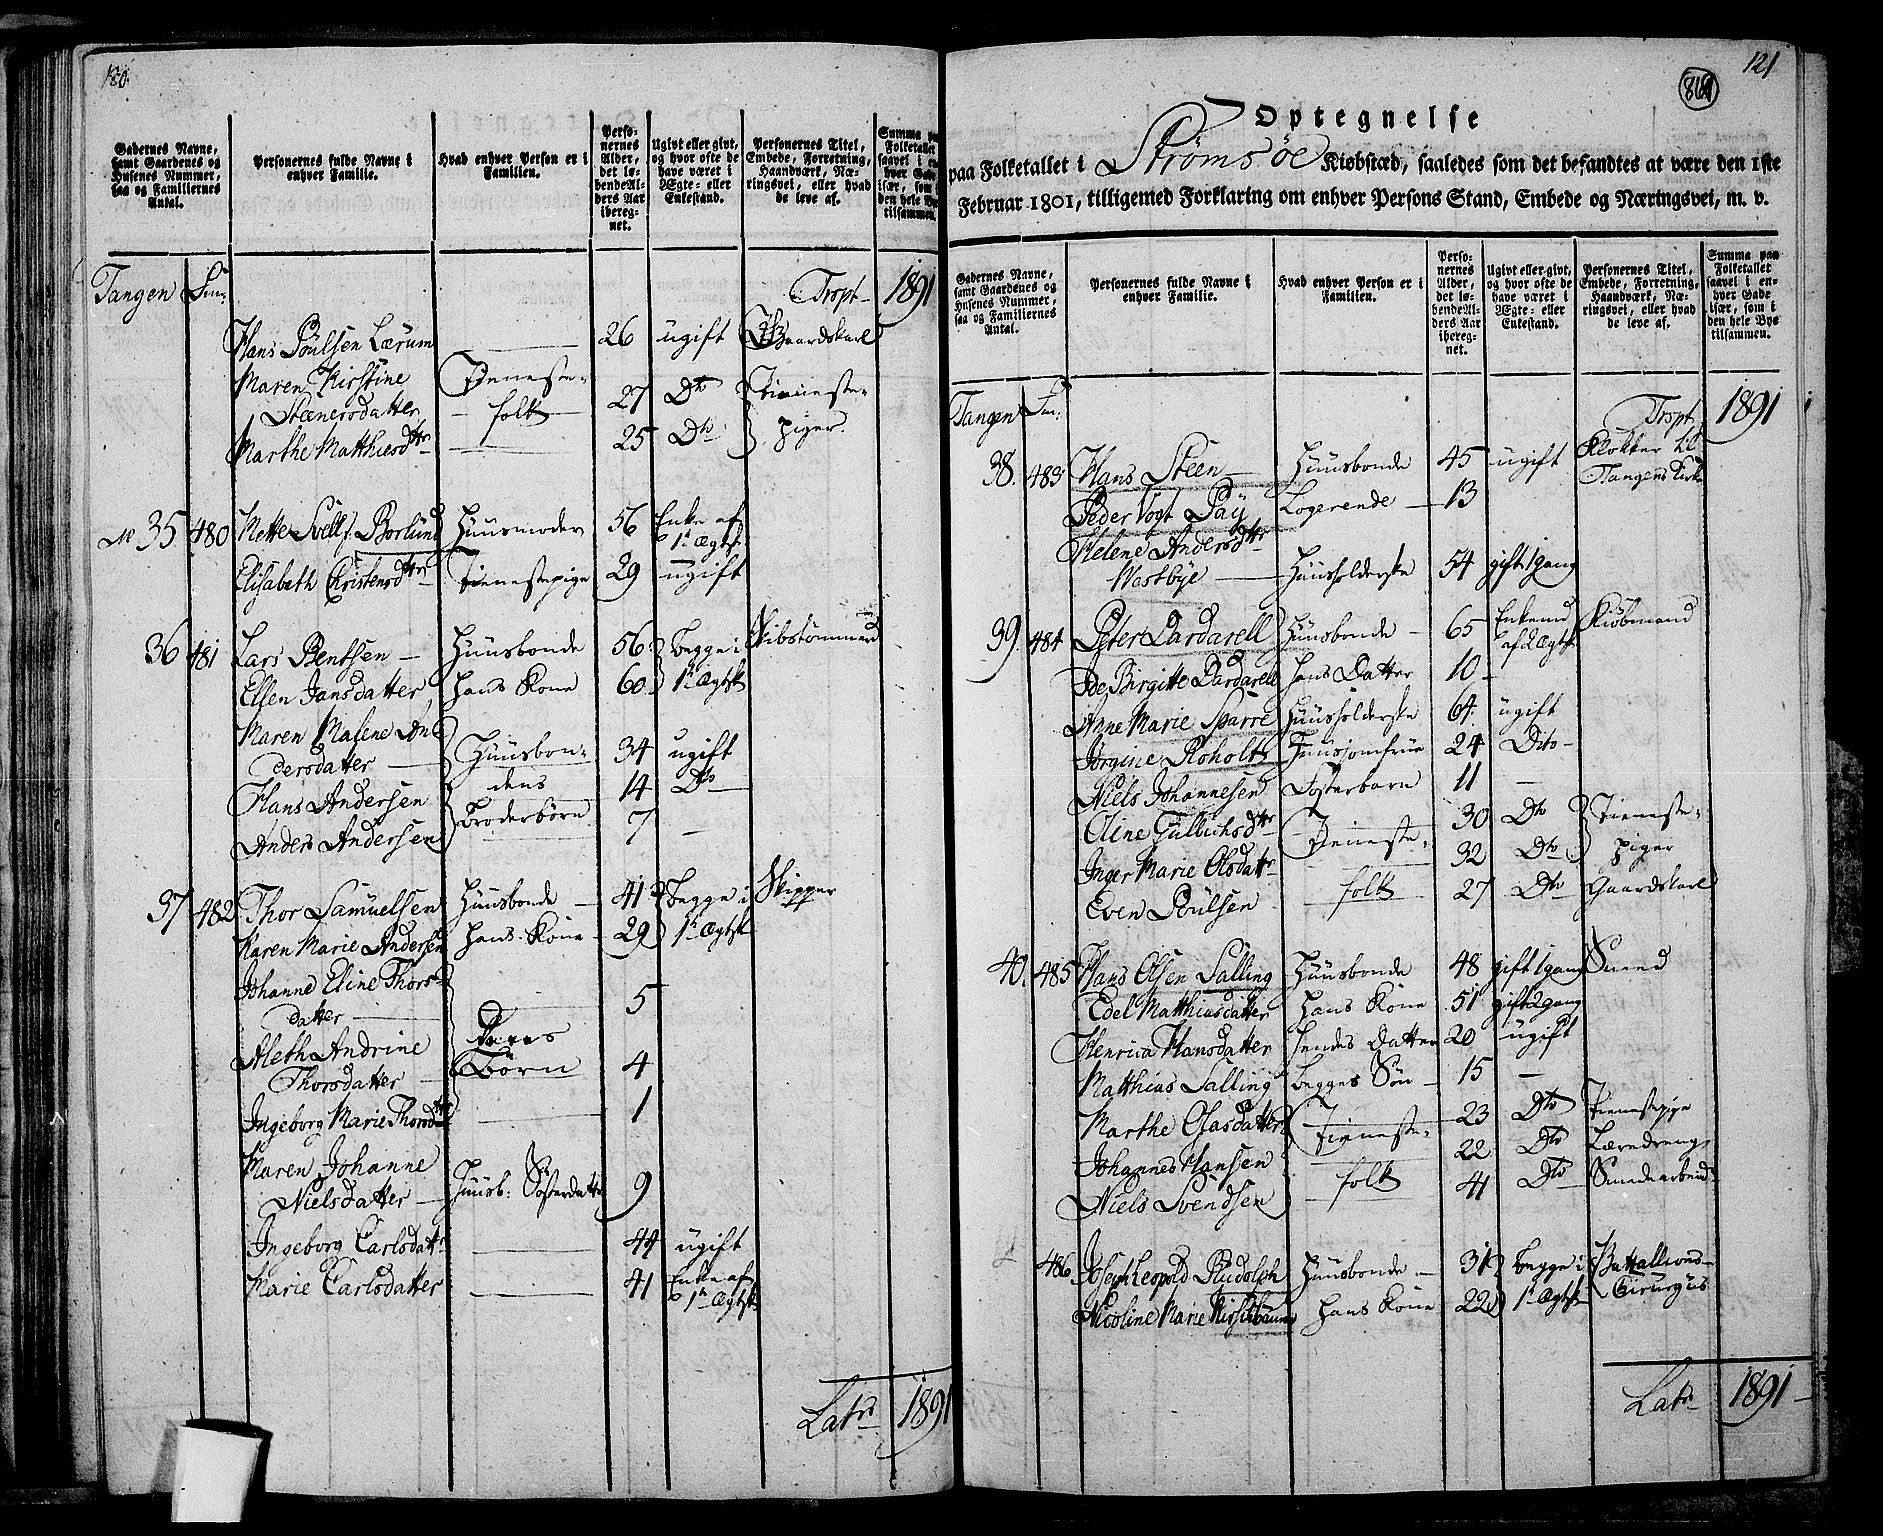 120.
Gadernes Navne, samt Gaardenes og Husenes Nummer, saa og Familiernes Antal.
Personernes fulde Navne i enhver Familie.
Hvad enhver Person er i Familien.
Personernes Alder, det løbende Alders Aar iberegnet.
Ugivt eller givt, og hvor ofte de have været i Ægte- eller Enkestand.
Personernes Titel, Embede, Forretning, Haandværk, Næringsvei, eller hvad de leve af.
Tangen Trspt 1891
Hans Poulsen Lærum 26 ugift Gaardskarl
Maren Kirstine Tieneste-
Steenersdatter folk 27 Dto Tieneste-
Marthe Matthiesdtr 25 Dto piger.
No 35 480 Mette Borlund Huusmoder 56 Enke af 1te Ægtsk
Elisabeth Christensdtr Tienestepige 29 ugift
36 481 Lars Bentsen Huusbonde 56 begge i Skibstømmermand
Ellen Jansdatter hans Kone 60 1te Ægtsk
Maren Malene An-
dersdatter Huusbon- 34 ugift
Hans Andersen dens 14 Dto
Anders Andersen Broderbørn 7 -
37 482 Thor Samuelsen Huusbonde 41 begge i Skipper
Karen Marie Andersen hans Kone 29 1te Ægtsk
Johanne Eline Thors-
datter 5
Aleth Andrine
Thorsdatter Børn 4
Ingeborg Marie Thorsdtr 1
Maren Johanne
Nielsdatter Huusb: Søsterdatter 9
Ingeborg Carlsdatr 44 ugift
Marie Carlsdatter 41 Enke af 1te Ægtsk
Latrs 1891
121
Optegnelse
paa Folketallet i Strømsøe Kiøbstæd, saaledes som det befandtes at være den 1ste
Februar 1801, tilligemed Forklaring om enhver Persons Stand, Embede og Næringsvei, m. v.
Gadernes Navne, samt Gaardenes og Husenes Nummer, saa og Familiernes Antal.
Personernes fulde Navne i enhver Familie.
Hvad enhver Person er i Familien.
Personernes Alder, det løbende Alders Aar iberegnet.
Ugivt eller givt, og hvor ofte de have været i Ægte- eller Enkestand.
Personernes Titel, Embede, Forretning, Haandværk, Næringsvei, eller hvad de leve af.
Summa paa Folketallet saavel i enhver Gade især, som i den hele Bye tilsammen.
Tangen Trspt. 1891
38. 483 Hans Steen Huusbonde 45 ugift Klokker til Tangens Kirke
Peder Vogt Pay Logerende 13
Helene Andersdtr
Westbye Huusholderske 54 gift 1 gang
39. 484 Peter Dardarell Huusbonde 65 Enkemd af 2 Ægtsk Kiøbmand
Ide Birgitte Dardarell hans Datter 10
Anne Marie Sparre Huusholderske 64 ugift
Jorgine Roholt Huusjomfrue 24 Dito
Niels Johannesen Fosterbarn 11 -
Eline Gulbichsdtr Tieneste- 30 Dto Tieneste-
Inger Marie Olsdatr 32 Dto piger
Even Poulsen folk 27 Dto Gaardskarl
40. 485 Hans Olsen Salling Huusbonde 48 gift 1 gang Smed
Edel Matthiasdatter hans Kone 51 gift 2 gang
Henrica Hansdatter hendes Datter 20 ugift
Matthias Salling begges Søn 15 -
Marthe Olasdatter Tieneste- 23 Dto Tienestepige
Johannes Hansen 22 Dto Læredreng
Niels Svendsen folk 41 Dto Smedearbeid
486 Joseph Leopold Rudolph Huusbonde 31 begge i Battallions-
Nicoline Marie Kirschbaum hans Kone 22 1te Ægtsk Cirurgus
Latrs 1891